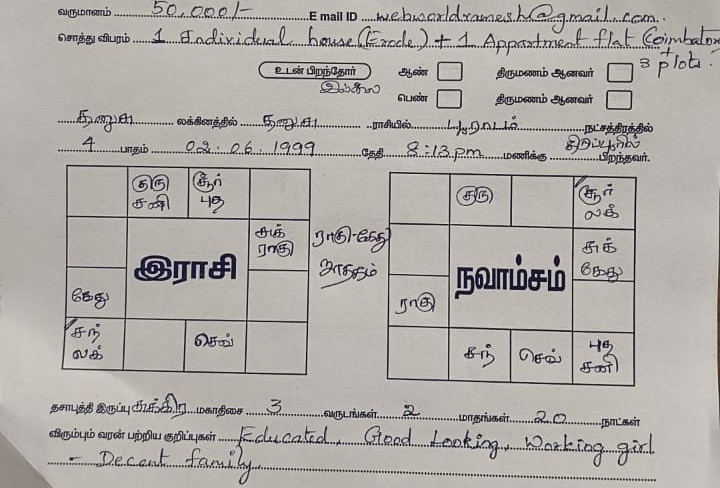 வருமானம் 50,000/- E mail ID webworldramesh@gmail.com.
சொத்து விபரம் 1 Individual house (Erode) + 1 Appartment flat (Coimbatore)
+
3 plots.
உடன் பிறந்தோர் ஆண் திருமணம் ஆனவர்
இல்லை
பெண் திருமணம் ஆனவர்
தனுசு லக்கினத்தில் தனுசு ராசியில் பூராடம் நட்சத்திரத்தில்
4 பாதம் 02.06.1999 தேதி 8:13 pm மணிக்கு திருப்பூரில் பிறந்தவர்.
குரு
சனி
சூர்
புத
சுக்
ராகு
இராசி
கேது
சந்
லக்
செவ்
ராகு-கேது
ஜாதகம்
குரு
சூர்
லக்
சுக்
கேது
நவாம்சம்
ராகு
சந்
செவ்
புத
சனி
தசாபுத்தி இருப்பு சுக்கிர மகாதிசை 3 வருடங்கள் 2 மாதங்கள் 20 நாட்கள்
விரும்பும் வரன் பற்றிய குறிப்புகள் Educated, Good Looking, Working girl
- Decent family.